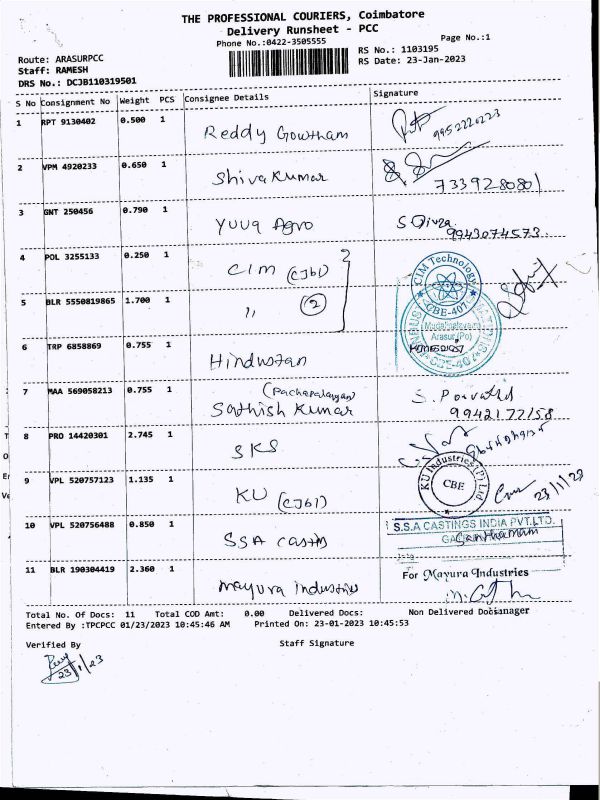 THE PROFESSIONAL COURIERS, Coimbatore
Delivery Runsheet - PCC
Phone No.:0422-3505555
Page No.:1
Route: ARASURPCC
RS No.: 1103195
Staff: RAMESH
RS Date: 23-Jan-2023
DRS No.: DCJB110319501
S No Consignment No Weight PCS Consignee Details Signature
1 RPT 9130402 0.500 1 Reddy Gowtham 9952220223
2 VPM 4920233 0.650 1 Shivakumar 7339280801
3 GNT 250456 0.790 1 Yuva Agro 9943074573
4 POL 3255133 0.250 1 CIM (CJb1) CIM Technology CBE-407
5 BLR 5550819865 1.700 1 " (2)
6 TRP 6858869 0.755 1 Hindustan Arasur (Po)
7 MAA 569058213 0.755 1 (Pachapalayam) Sathish Kumar 9942172158
8 PRO 14420301 2.745 1 SKS
9 VPL 520757123 1.135 1 KU (CJb1) KU Industries (P) Ltd CBE 23/1/23
10 VPL 520756488 0.850 1 SSA Casting S.S.A CASTINGS INDIA PVT.LTD.
11 BLR 190304419 2.360 1 Mayura Industries For Mayura Industries
Total No. Of Docs: 11 Total COD Amt: 0.00 Delivered Docs: Non Delivered Docs:
Entered By :TPCPCC 01/23/2023 10:45:46 AM Printed On: 23-01-2023 10:45:53
Verified By Staff Signature
23/1/23